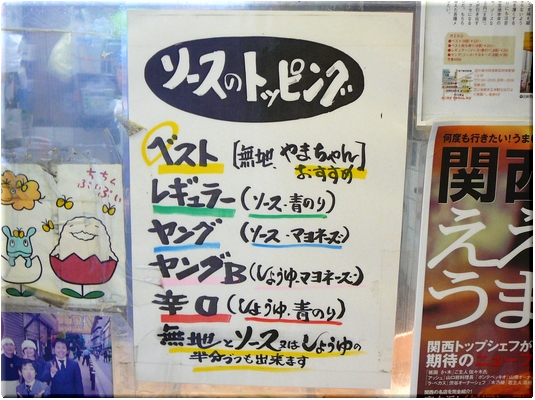 ソースのトッピング
ベスト [無地、やまちゃん]
おすすめ
レギュラー (ソース・青のり)
ヤング (ソース・マヨネーズ)
ヤングB (しょうゆ・マヨネーズ)
辛口 (しょうゆ・青のり)
無地とソース又はしょうゆの
半分づつも出来ます
何度も行きたい!うま
関西
ええ
うま
関西トップシェフが
期待の
関西の名店を完全紹介!